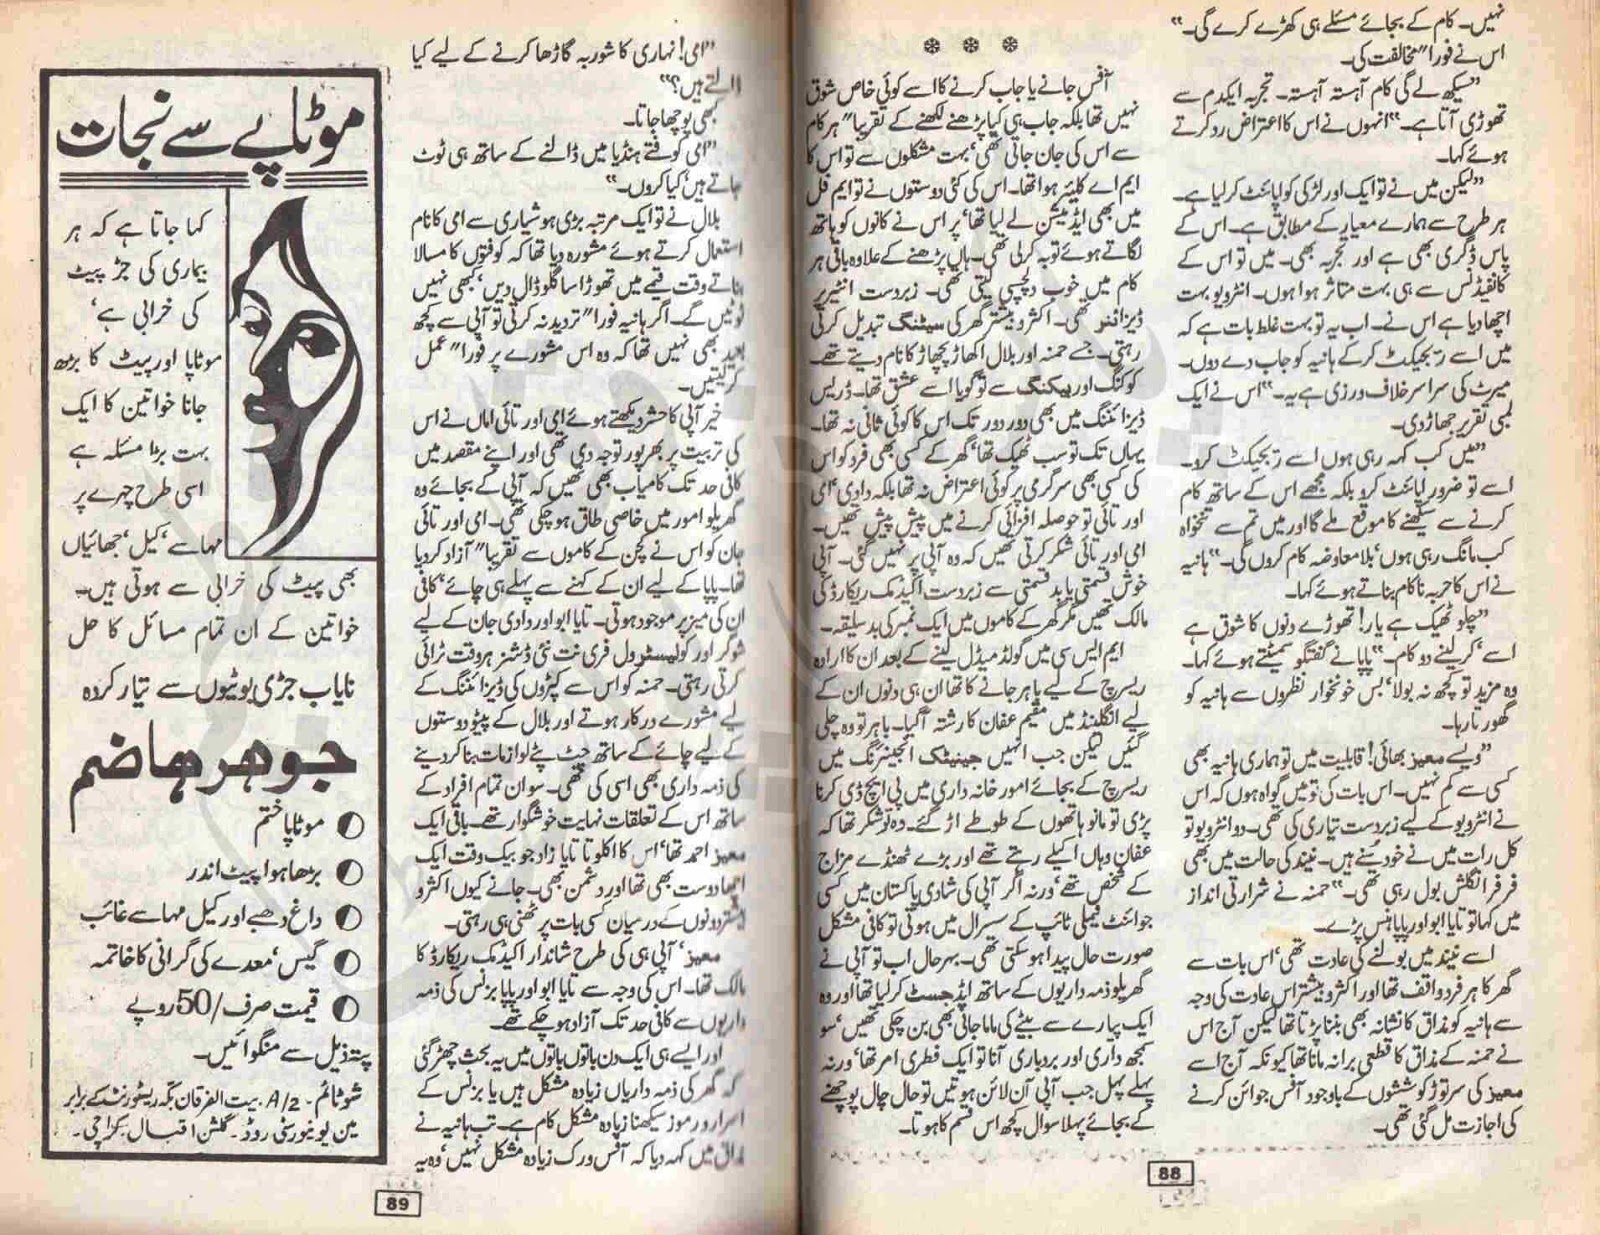 نہیں۔ کام کے بجائے مسئلے ہی کھڑے کرے گی۔"
اس نے فوراً مخالفت کی۔
"سیکھ لے گی کام آہستہ آہستہ۔ تجربہ ایکدم سے
تھوڑی آتا ہے۔" انہوں نے اس کا اعتراض رد کرتے
ہوئے کہا۔
"لیکن میں نے تو ایک اور لڑکی کو اپائنٹ کر لیا ہے۔
ہر طرح سے ہمارے معیار کے مطابق ہے۔ اس کے
پاس ڈگری بھی ہے اور تجربہ بھی۔ میں تو اس کے
کانفیڈنس سے ہی بہت متاثر ہوا ہوں۔ انٹرویو بہت
اچھا دیا ہے اس نے۔ اب یہ تو بہت غلط بات ہے کہ
میں اسے ریجیکٹ کر کے ہانیہ کو جاب دے دوں۔
میرٹ کی سراسر خلاف ورزی ہے یہ۔" اس نے ایک
لمبی تقریر جھاڑ دی۔
"میں کب کہہ رہی ہوں اسے ریجیکٹ کرو۔
اسے تو ضرور اپائنٹ کرو بلکہ مجھے اس کے ساتھ کام
کرنے سے سیکھنے کا موقع ملے گا اور میں تم سے تنخواہ
کب مانگ رہی ہوں، بلا معاوضہ کام کروں گی۔" ہانیہ
نے اس کا حربہ ناکام بناتے ہوئے کہا۔
"چلو ٹھیک ہے یار! تھوڑے دنوں کا شوق ہے
اسے، کر لینے دو کام۔" پاپا نے گفتگو سمیٹتے ہوئے کہا۔
وہ مزید تو کچھ نہ بولا، بس خونخوار نظروں سے ہانیہ کو
گھورتا رہا۔
"ویسے معیز بھائی! قابلیت میں تو ہماری ہانیہ بھی
کسی سے کم نہیں۔ اس بات کی تو میں گواہ ہوں کہ اس
نے انٹرویو کے لیے زبردست تیاری کی تھی۔ دو انٹرویو تو
کل رات میں نے خود سُنے ہیں۔ نیند کی حالت میں بھی
فرفر انگلش بول رہی تھی۔" حمنہ نے شرارتی انداز
میں کہا تو تایا ابو اور پاپا ہنس پڑے۔
اسے نیند میں بولنے کی عادت تھی، اس بات سے
گھر کا ہر فرد واقف تھا اور اکثر و بیشتر اس عادت کی وجہ
سے ہانیہ کو مذاق کا نشانہ بھی بننا پڑتا تھا لیکن آج اس
نے حمنہ کے مذاق کا قطعی برا نہ مانا تھا کیونکہ آج اسے
معیز کی سرتوڑ کوششوں کے باوجود آفس جوائن کرنے
کی اجازت مل گئی تھی۔
❄ ❄ ❄
آفس جانے یا جاب کرنے کا اسے کوئی خاص شوق
نہیں تھا بلکہ جاب ہی کیا پڑھنے لکھنے کے تقریباً ہر کام
سے اس کی جان جاتی تھی، بہت مشکلوں سے تو اس کا
ایم اے کلیئر ہوا تھا۔ اس کی کئی دوستوں نے تو ایم فل
میں بھی ایڈمیشن لے لیا تھا، پر اس نے کانوں کو ہاتھ
لگاتے ہوئے توبہ کر لی تھی۔ ہاں پڑھنے کے علاوہ باقی ہر
کام میں خوب دلچسپی لیتی تھی۔ زبردست انٹیریر
ڈیزائنر تھی۔ اکثر و بیشتر گھر کی سیٹنگ تبدیل کرتی
رہتی۔ جسے حمنہ اور بلال اکھاڑ پچھاڑ کا نام دیتے تھے۔
کوکنگ اور بیکنگ سے تو گویا اسے عشق تھا۔ ڈریس
ڈیزائننگ میں بھی دور دور تک اس کا کوئی ثانی نہ تھا۔
یہاں تک تو سب ٹھیک تھا، گھر کے کسی بھی فرد کو اس
کی کسی بھی سرگرمی پر کوئی اعتراض نہ تھا بلکہ دادی، امی
اور تائی تو حوصلہ افزائی کرنے میں پیش پیش تھیں۔
امی اور تائی شکر کرتی تھیں کہ وہ آپی پر نہیں گئی۔ آپی
خوش قسمتی یا بد قسمتی سے زبردست اکیڈمک ریکارڈ کی
مالک تھیں مگر گھر کے کاموں میں ایک نمبر کی بد سلیقہ۔
ایم ایس سی میں گولڈ میڈل لینے کے بعد ان کا ارادہ
ریسرچ کے لیے باہر جانے کا تھا ان ہی دنوں ان کے
لیے انگلینڈ میں مقیم عفان کا رشتہ آ گیا۔ باہر تو وہ چلی
گئیں لیکن جب انہیں جینیٹک انجینئرنگ میں
ریسرچ کے بجائے امور خانہ داری میں پی ایچ ڈی کرنا
پڑی تو مانو ہاتھوں کے طوطے اڑ گئے۔ وہ تو شکر تھا کہ
عفان وہاں اکیلے رہتے تھے اور بڑے ٹھنڈے مزاج
کے شخص تھے، ورنہ اگر آپی کی شادی پاکستان میں کسی
جوائنٹ فیملی ٹائپ کے سسرال میں ہوتی تو کافی مشکل
صورت حال پیدا ہو سکتی تھی۔ بہرحال اب تو آپی نے
گھریلو ذمہ داریوں کے ساتھ ایڈجسٹ کر لیا تھا اور وہ
ایک پیارے سے بیٹے کی ماما جانی بھی بن چکی تھیں، سو
سمجھ داری اور بردباری آنا تو ایک فطری امر تھا، ورنہ
پہلے پہل جب آپی آن لائن ہوتیں تو حال چال پوچھنے
کے بجائے پہلا سوال کچھ اس قسم کا ہوتا۔
88
"امی! نہاری کا شوربہ گاڑھا کرنے کے لیے کیا
ڈالتے ہیں؟"
کبھی پوچھا جاتا۔
"امی کوفتے ہنڈیا میں ڈالنے کے ساتھ ہی ٹوٹ
جاتے ہیں، کیا کروں۔"
بلال نے تو ایک مرتبہ بڑی ہوشیاری سے امی کا نام
استعمال کرتے ہوئے مشورہ دیا تھا کہ کوفتوں کا مسالا
بناتے وقت قیمے میں تھوڑا سا گلو ڈال دیں، کبھی نہیں
ٹوٹیں گے۔ اگر ہانیہ فوراً تردید نہ کرتی تو آپی سے کچھ
بعید بھی نہیں تھا کہ وہ اس مشورے پر فوراً عمل
کر لیتیں۔
خیر آپی کا حشر دیکھتے ہوئے امی اور تائی اماں نے اس
کی تربیت پر بھرپور توجہ دی تھی اور اپنے مقصد میں
کافی حد تک کامیاب بھی تھیں کہ آپی کے بجائے وہ
گھریلو امور میں خاصی طاق ہو چکی تھی۔ امی اور تائی
جان کو اس نے کچن کے کاموں سے تقریباً آزاد کر دیا
تھا۔ پاپا کے لیے ان کے کہنے سے پہلے ہی چائے، کافی
ان کی میز پر موجود ہوتی۔ تایا ابو اور دادی جان کے لیے
شوگر اور کولیسٹرول فری نت نئی ڈشنز ہر وقت ٹرائی
کرتی رہتی۔ حمنہ کو اس سے کپڑوں کی ڈیزائننگ کے
لیے مشورے درکار ہوتے اور بلال کے پیٹو دوستوں
کے لیے چائے کے ساتھ چٹ پٹے لوازمات بنا کر دینے
کی ذمہ داری بھی اسی کی تھی۔ سو ان تمام افراد کے
ساتھ اس کے تعلقات نہایت خوشگوار تھے۔ باقی ایک
معیز احمد تھا، اس کا اکلوتا تایا زاد جو بیک وقت ایک
اچھا دوست بھی تھا اور دشمن بھی۔ جانے کیوں اکثر و
بیشتر دونوں کے درمیان کسی بات پر ٹھنی ہی رہتی۔
معیز، آپی ہی کی طرح شاندار اکیڈمک ریکارڈ کا
مالک تھا۔ اس کی وجہ سے تایا ابو اور پاپا بزنس کی ذمہ
داریوں سے کافی حد تک آزاد ہو چکے تھے۔
اور ایسے ہی ایک دن باتوں باتوں میں یہ بحث چھڑ گئی
کہ گھر کی ذمہ داریاں زیادہ مشکل ہیں یا بزنس کے
اسرار و رموز سیکھنا زیادہ مشکل کام ہے۔ تب ہانیہ نے
مذاق میں کہہ دیا کہ آفس ورک زیادہ مشکل نہیں، وہ یہ
موٹاپے سے نجات
کہا جاتا ہے کہ ہر
بیماری کی جڑ پیٹ
کی خرابی ہے،
موٹاپا اور پیٹ کا بڑھ
جانا خواتین کا ایک
بہت بڑا مسئلہ ہے
اسی طرح چہرے پر
مہاسے، کیل، جھائیاں
بھی پیٹ کی خرابی سے ہوتی ہیں۔
خواتین کے ان تمام مسائل کا حل
نایاب جڑی بوٹیوں سے تیار کردہ
جوہر ہاضم
موٹاپا ختم
بڑھا ہوا پیٹ اندر
داغ دھبے اور کیل مہاسے غائب
گیس، معدے کی گرانی کا خاتمہ
قیمت صرف /50 روپے
پتہ ذیل سے منگوائیں۔
شوٹائم۔ A/2، بیت الفرقان بکہ ریسٹورنٹ کے برابر
مین یونیورسٹی روڈ۔ گلشن اقبال۔ کراچی۔
89